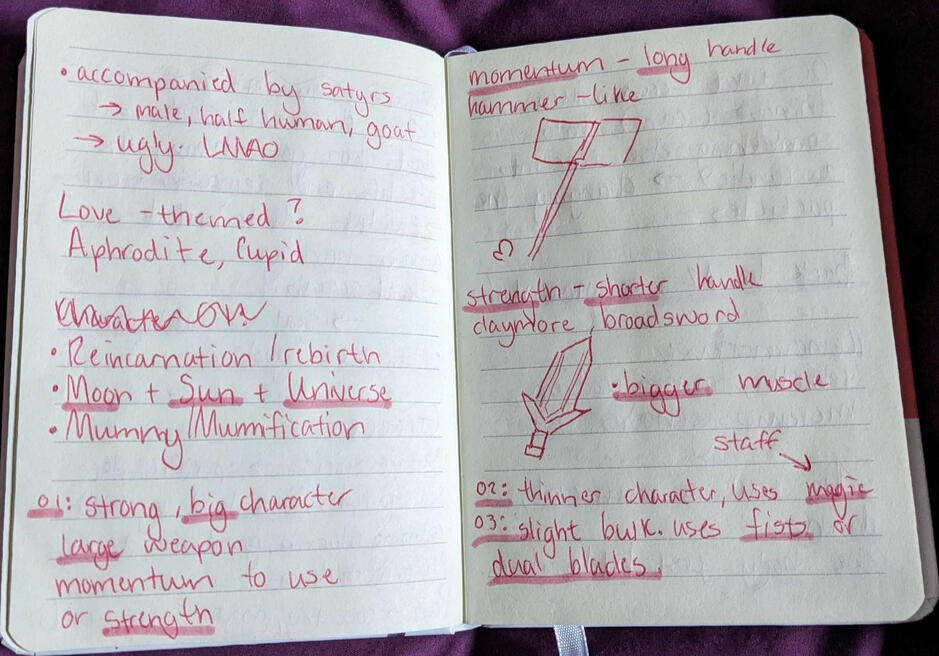 • accompanied by satyrs
→ male, half human, goat
→ ugly. LMAO
Love - themed ?
Aphrodite, Cupid
• Reincarnation / rebirth
• Moon + Sun + Universe
• Mummy/Mumification
01: strong, big character
large weapon
momentum to use
or strength
momentum - long handle
hammer - like
strength - shorter handle
claymore, broadsword
• bigger muscle
staff
02: thinner character, uses magic
03: slight bulk. uses fists or
dual blades.